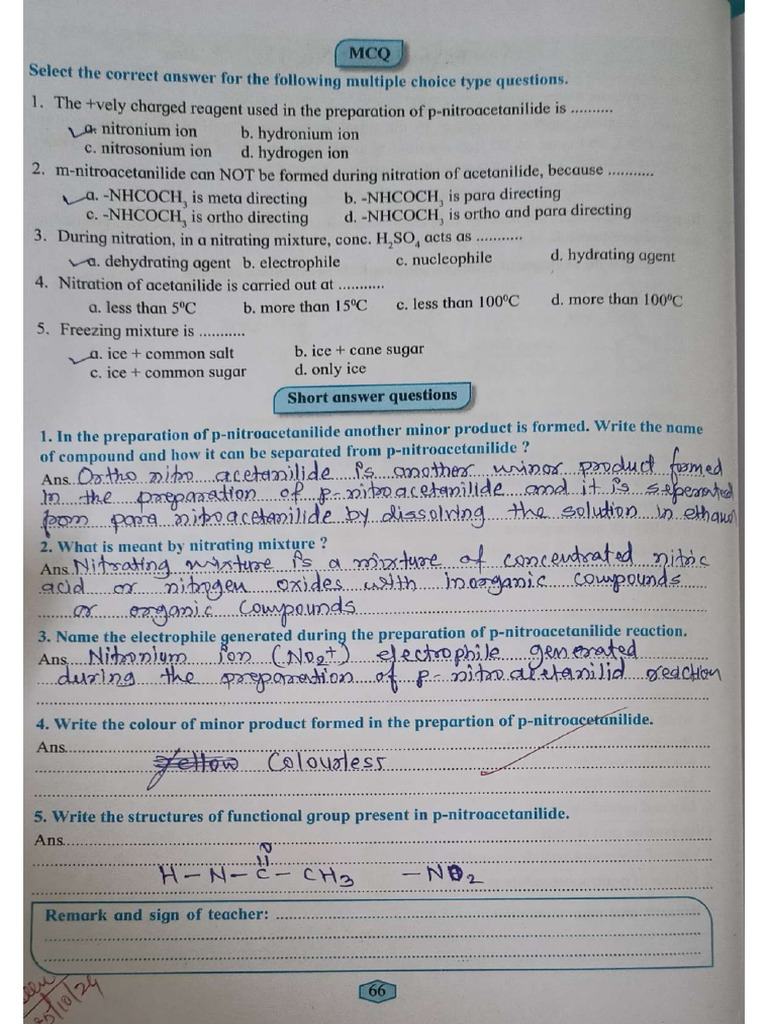 MCQ
Select the correct answer for the following multiple choice type questions.
1. The +vely charged reagent used in the preparation of p-nitroacetanilide is ..........
a. nitronium ion b. hydronium ion
c. nitrosonium ion d. hydrogen ion
2. m-nitroacetanilide can NOT be formed during nitration of acetanilide, because ...........
a. -NHCOCH₃ is meta directing b. -NHCOCH₃ is para directing
c. -NHCOCH₃ is ortho directing d. -NHCOCH₃ is ortho and para directing
3. During nitration, in a nitrating mixture, conc. H₂SO₄ acts as ...........
a. dehydrating agent b. electrophile c. nucleophile d. hydrating agent
4. Nitration of acetanilide is carried out at ...........
a. less than 5⁰C b. more than 15⁰C c. less than 100⁰C d. more than 100⁰C
5. Freezing mixture is ...........
a. ice + common salt b. ice + cane sugar
c. ice + common sugar d. only ice
Short answer questions
1. In the preparation of p-nitroacetanilide another minor product is formed. Write the name
of compound and how it can be separated from p-nitroacetanilide ?
Ans. Ortho nitro acetanilide is another minor product formed
In the preparation of p-nitroacetanilide and it is seperated
from para nitroacetanilide by dissolving the solution in ethanol
2. What is meant by nitrating mixture ?
Ans. Nitrating mixture is a mixture of concentrated nitric
acid or nitrogen oxides with inorganic compounds
or organic compounds
3. Name the electrophile generated during the preparation of p-nitroacetanilide reaction.
Ans. Nitronium ion (NO₂+) electrophile generated
during the preparation of p-nitro acetanilid reaction
4. Write the colour of minor product formed in the prepartion of p-nitroacetanilide.
Ans.
Yellow Colourless
5. Write the structures of functional group present in p-nitroacetanilide.
Ans.
O
H-N-C-CH₃ -NO₂
Remark and sign of teacher:
66
/10/24